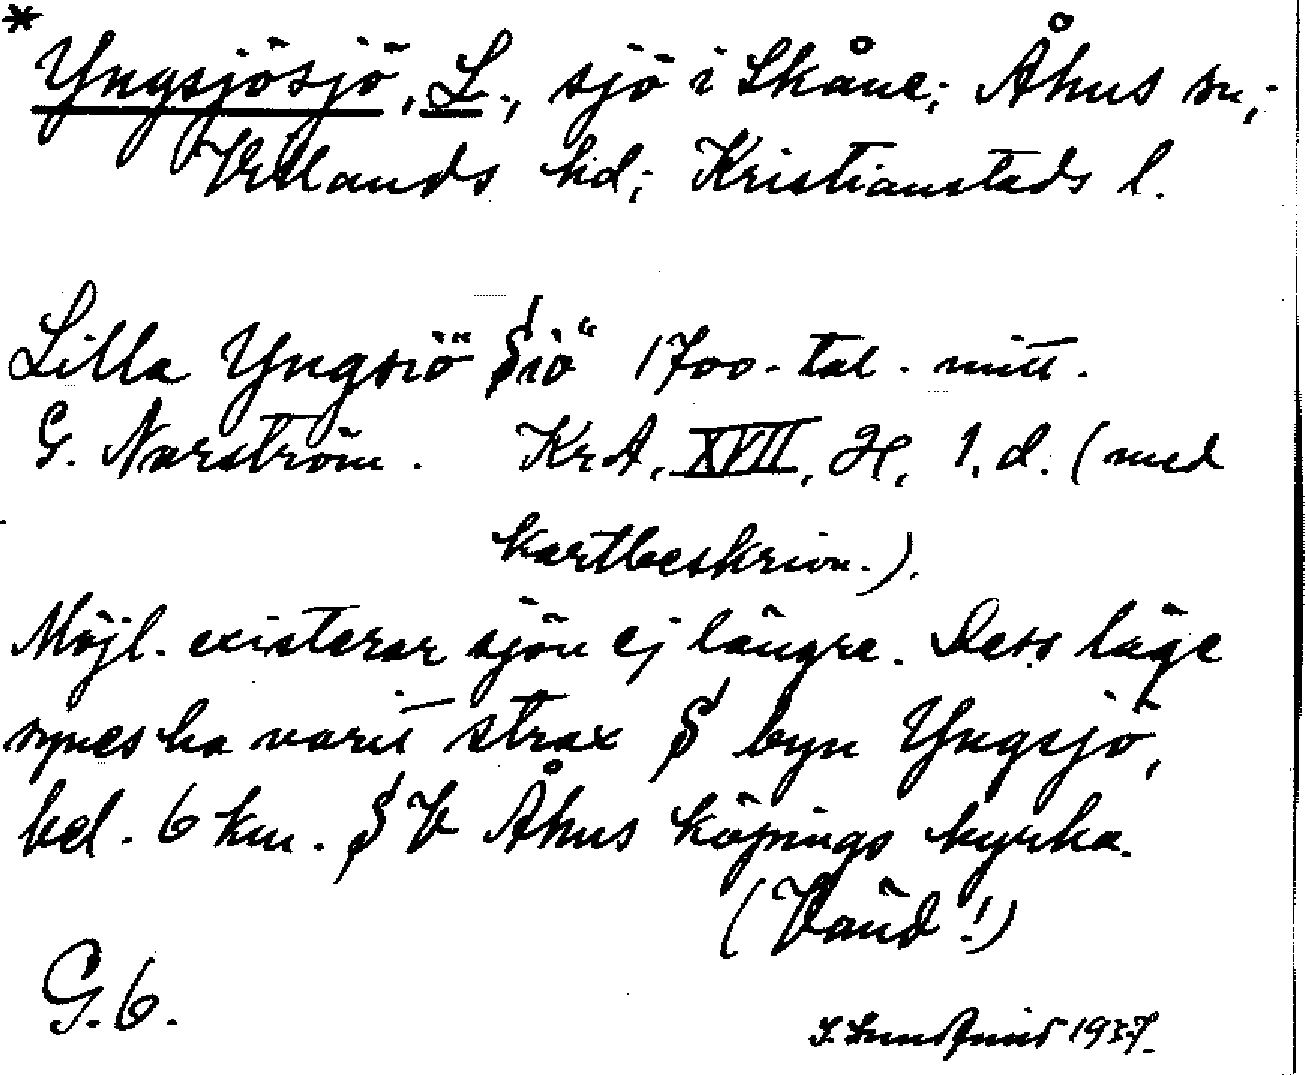 *
Yngsjösjö, L., sjö i Skåne; Åhus sn,;
Villands hd; Kristianstads l.
Lilla Yngsiö Siö" 1700-tal. mitt.
G. Narström. KrA, XVII, H, 1, d. (med
kartbeskrivn.).
Möjl. existerar sjön ej längre. Dess läge
synes ha varit strax S byn Yngsjö,
bel. 6 km. SV Åhus köpings kyrka.
(Vänd!)
G. 6.
1937.